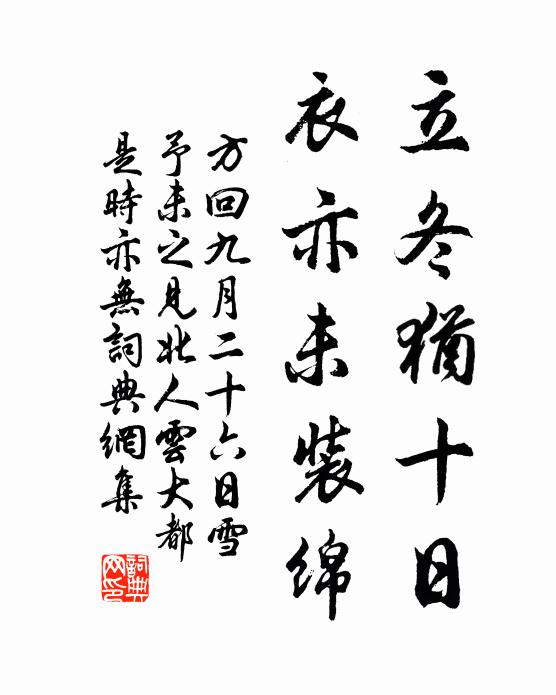 立冬猶十日
衣亦未裝綿
方回九月二十六日雪
予未之見北人雲大都
是時亦無詞典網集
詞典
网印